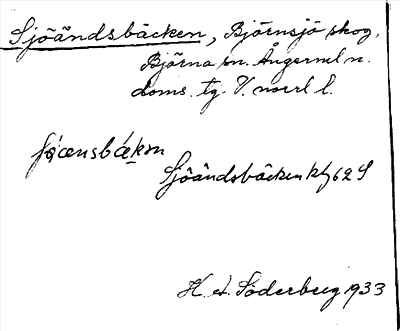 Sjöändsbäcken, Björnsjö skog,
Björna sn. Ångerml n.
doms. tg V. norrl l.
Sjöändsbäcken kf 62 S
H. A. Söderberg 1933